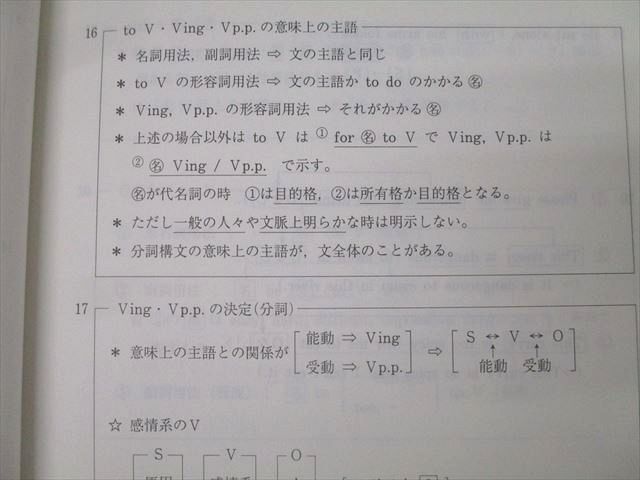 16 to V・Ving・Vp.p. の意味上の主語
* 名詞用法，副詞用法 ⇨ 文の主語と同じ
* to V の形容詞用法 ⇨ 文の主語か to do のかかる㊔
* Ving, Vp.p. の形容詞用法 ⇨ それがかかる㊔
* 上述の場合以外は to V は ① for ㊔ to V で Ving, Vp.p. は
② ㊔ Ving / Vp.p. で示す。
㊔が代名詞の時 ①は目的格，②は所有格か目的格となる。
* ただし一般の人々や文脈上明らかな時は明示しない。
* 分詞構文の意味上の主語が，文全体のことがある。
17 Ving・Vp.p. の決定(分詞)
* 意味上の主語との関係が [能動 ⇒ Ving 受動 ⇒ Vp.p.] ⇨ [S ↔ V ↔ O ↑能動 ↑受動]
☆ 感情系のV
S V O